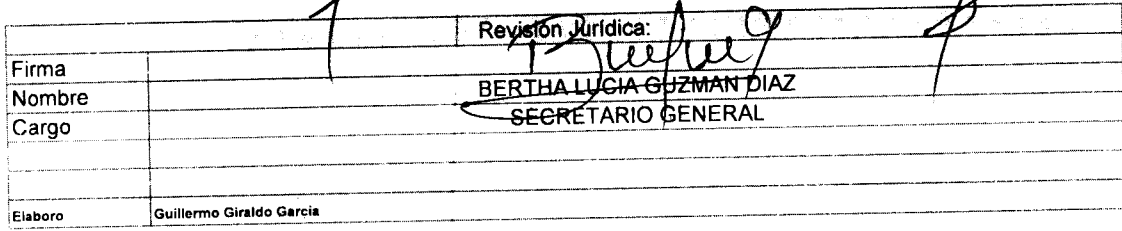 Revisión Jurídica:
Firma
Nombre BERTHA LUCIA GUZMAN DIAZ
Cargo SECRETARIO GENERAL
Elaboro Guillermo Giraldo Garcia